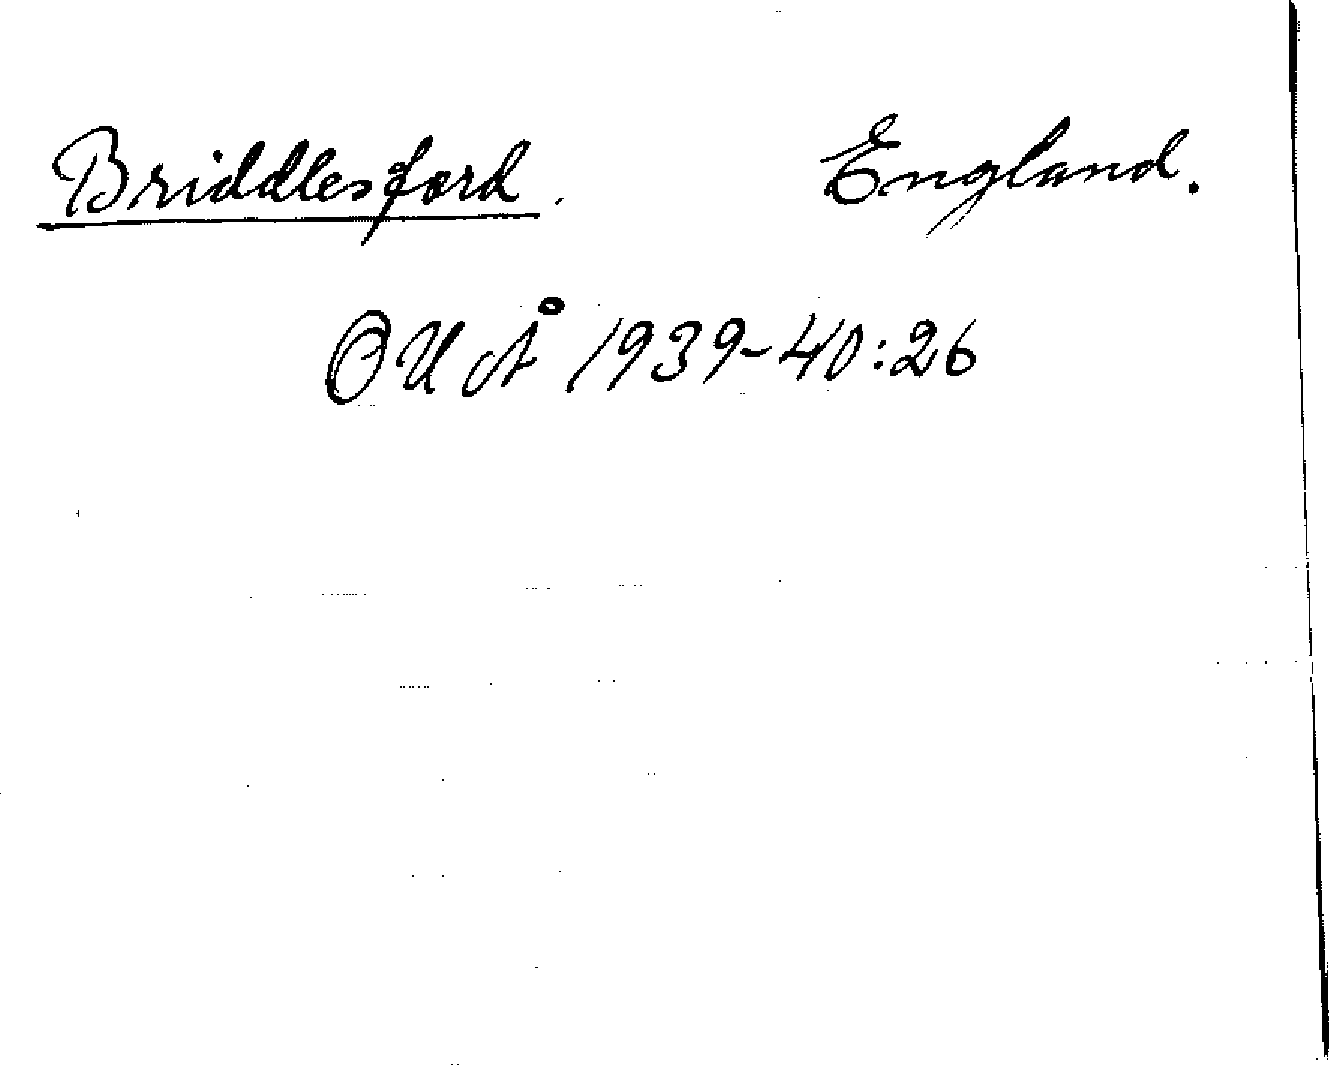 Briddlesford. England.
OUÅ 1939-40:26